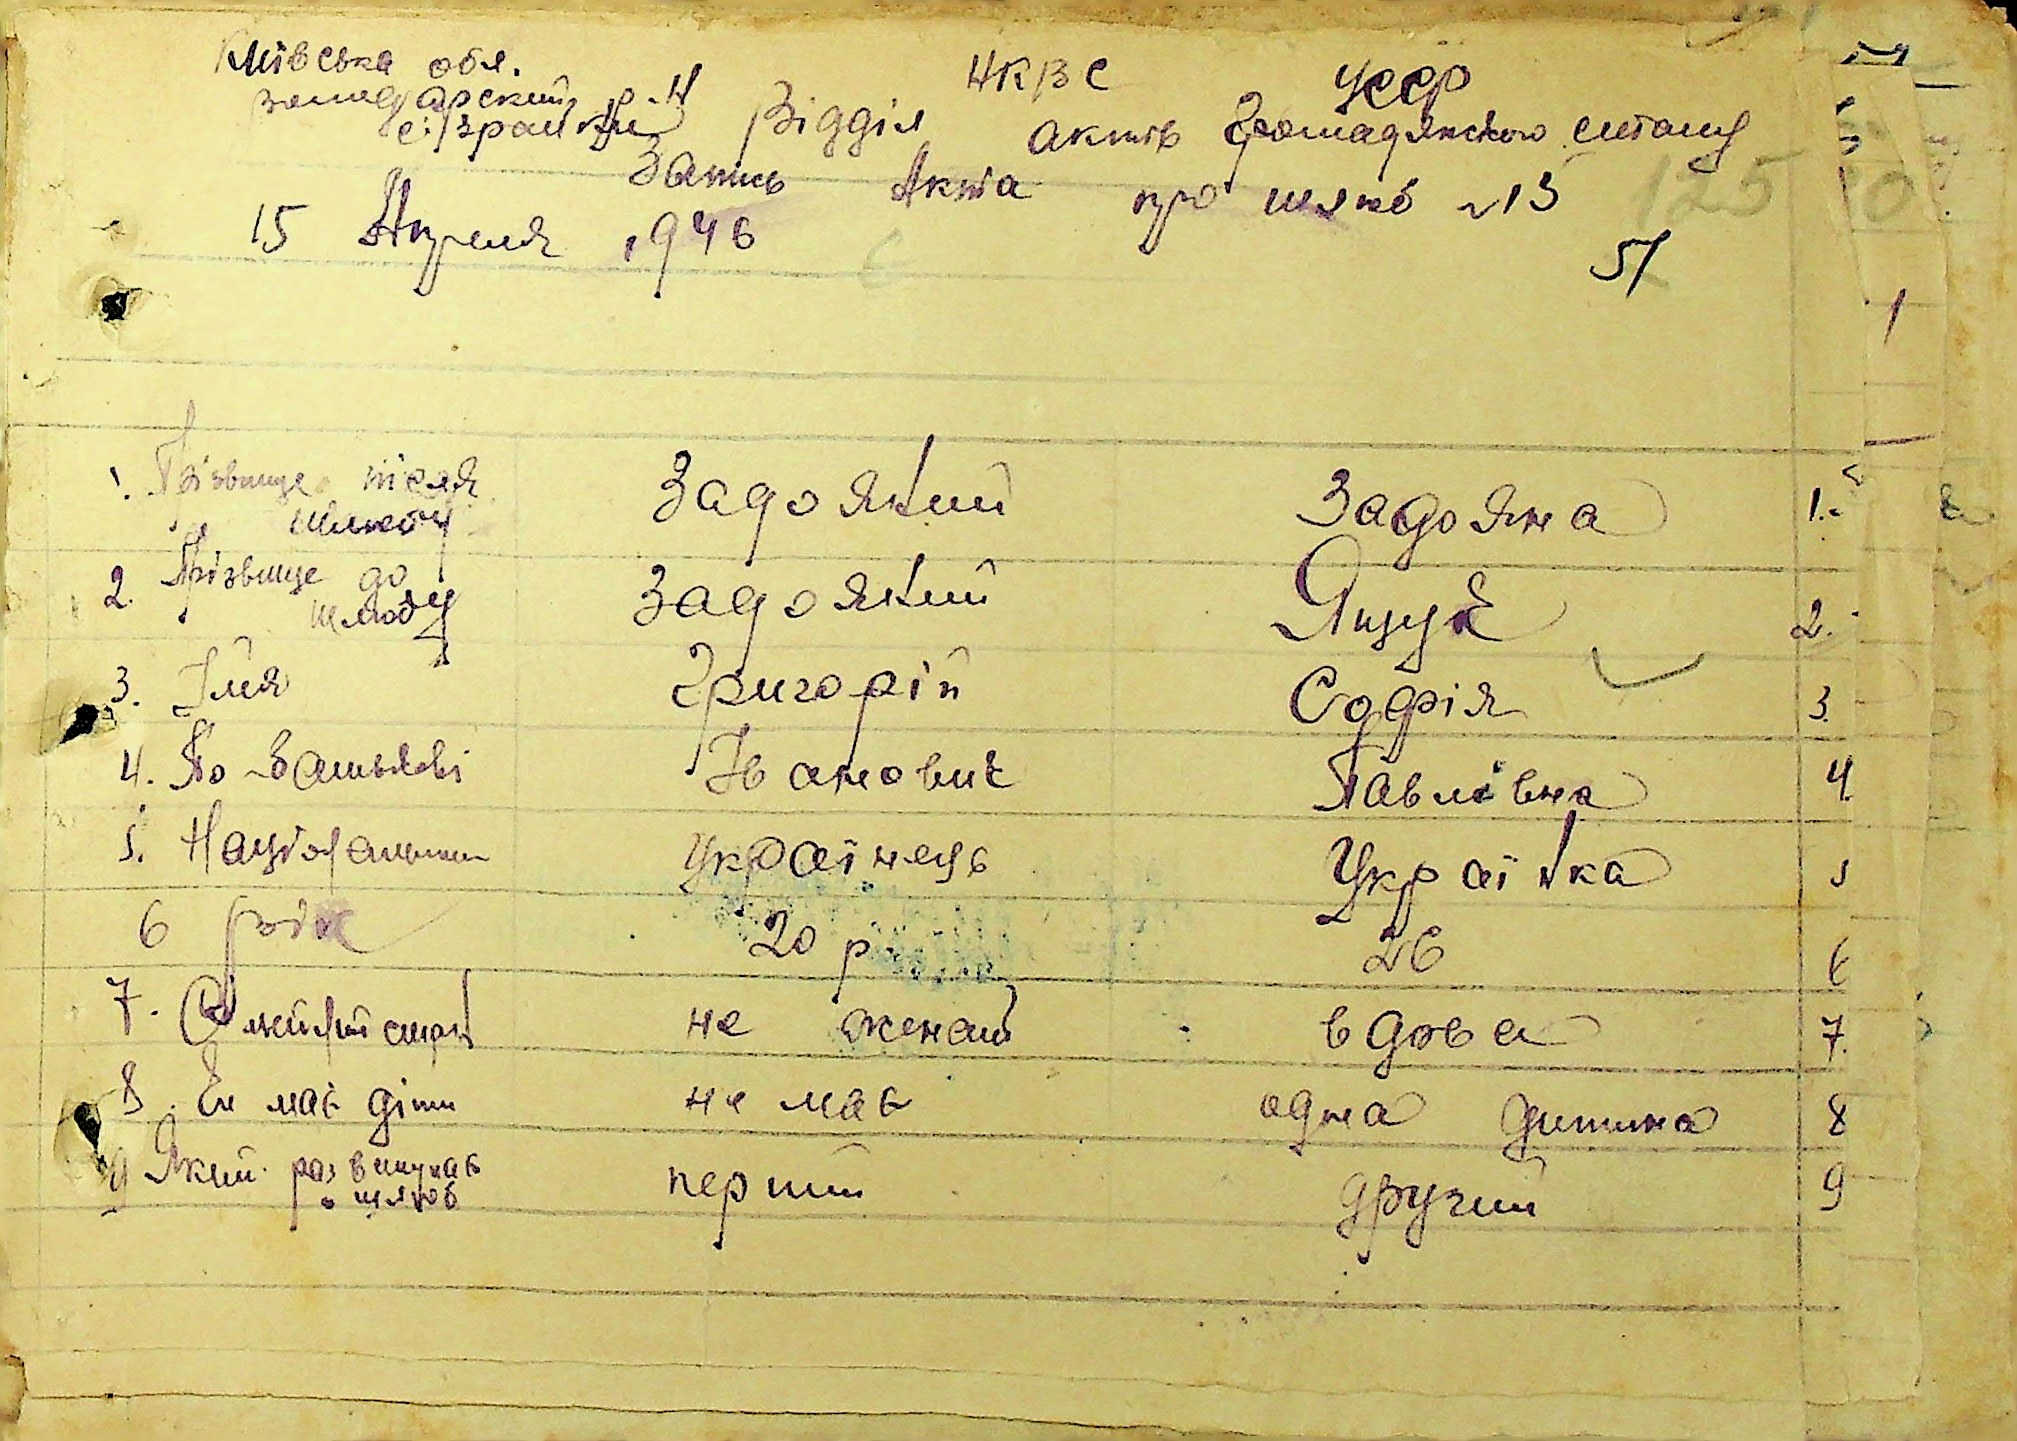 Київська обл. НКВС УССР
р-н
Відділ актів Громадянського стану
Запись Акта про шлюб №13
15 Апреля 1946
51
125
1. Прізвище після шлюбу Задоякий Задояна 1.
2. Прізвище до шлюбу Задоякий Ящук 2.
3. Імя Григорій Софія 3.
4. По Батькові Іванович Павлівна 4.
5. Україінець Україінка 5
6 20 р. 26 6
7. не женат вдова 7.
8. Чи має діти не має одна дитина 8
9 Який раз вступає в шлюб перший другий 9